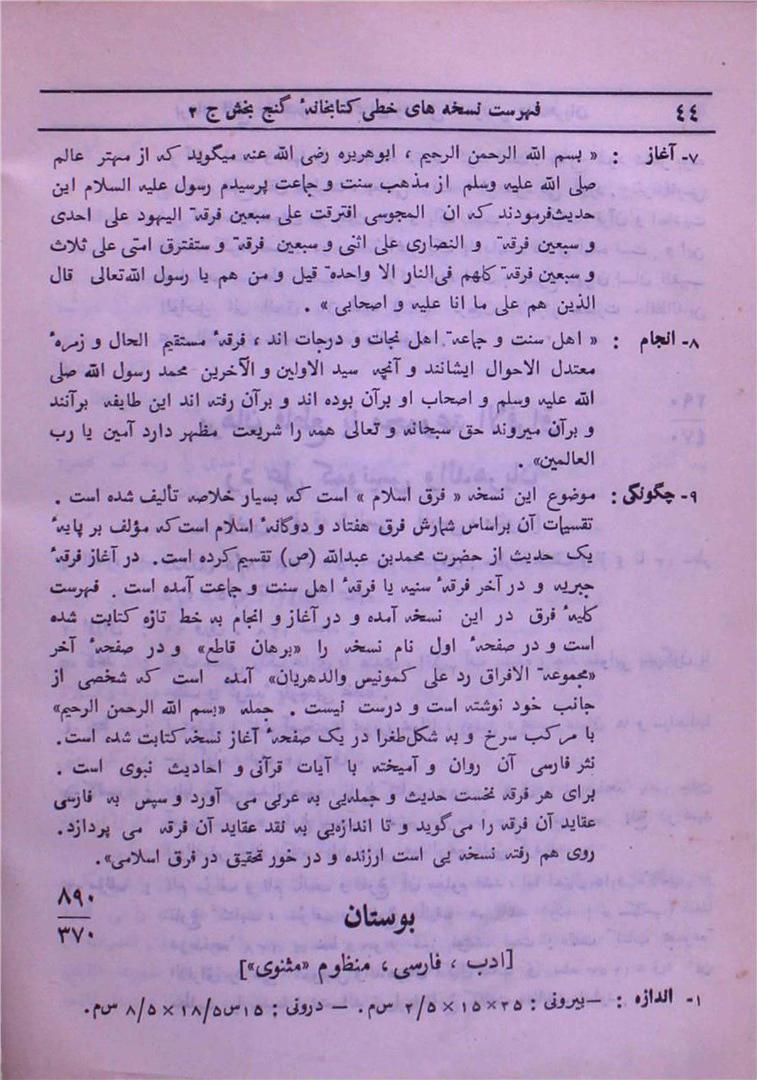 ۴۴ فهرست نسخه های خطی کتابخانهٔ گنج بخش ج ۲
۷- آغاز : « بسم الله الرحمن الرحیم ، ابوهریره رضی الله عنه میگوید که از مهتر عالم
صلی الله علیه وسلم از مذهب سنت و جماعت پرسیدم رسول علیه السلام این
حدیث‌فرمودند که ان المجوسی افترقت علی سبعین فرقة الیهود علی احدی
و سبعین فرقة و النصاری علی اثنی و سبعین فرقة و ستفترق امتی علی ثلاث
و سبعین فرقة کلهم فی‌النار الا واحدة قیل و من هم یا رسول الله‌تعالی قال
الذین هم علی ما انا علیه و اصحابی » .
۸- انجام : « اهل سنت و جماعة اهل نجات و درجات اند ، فرقهٔ مستقیم الحال و زمرهٔ
معتدل الاحوال ایشانند و آنچه سید الاولین و الآخرین محمد رسول الله صلی
الله علیه وسلم و اصحاب او برآن بوده اند و برآن رفته اند این طایفه برآنند
و برآن میروند حق سبحانه و تعالی همه را شریعت مظهر دارد آمین یا رب
العالمین» .
۹- چگونگی : موضوع این نسخه « فرق اسلام » است که بسیار خلاصه تألیف شده است .
تقسیمات آن براساس شمارش فرق هفتاد و دوگانهٔ اسلام است‌که مؤلف بر پایهٔ
یک حدیث از حضرت محمدبن عبدالله (ص) تقسیم‌کرده است. در آغاز فرقهٔ
جبریه و در آخر فرقهٔ سنیه یا فرقهٔ اهل سنت و جماعت آمده است . فهرست
کلیهٔ فرق در این نسخه آمده و در آغاز و انجام به خط تازه کتابت شده
است و در صفحهٔ اول نام نسخه را «برهان قاطع» و در صفحهٔ آخر
«مجموعة الافراق رد علی کمونیس والدهریان» آمده است که شخصی از
جانب خود نوشته است و درست نیست . جمله «بسم الله الرحمن الرحیم»
با مرکب سرخ و به شکل‌طغرا در یک صفحهٔ آغاز نسخه‌کتابت شده است.
نثر فارسی آن روان و آمیخته با آیات قرآنی و احادیث نبوی است .
برای هر فرقه نخست حدیث و جمله‌یی به عربی می آورد و سپس به فارسی
عقاید آن فرقه را می‌گوید و تا اندازه‌یی به نقد عقاید آن فرقه می پردازد.
روی هم رفته نسخه یی است ارزنده و در خور تحقیق در فرق اسلامی».
۸۹۰
۳۷۰
بوستان
[ادب ، فارسی ، منظوم «مثنوی»]
۱- اندازه : —بیرونی : ۲۵×۱۵×۲/۵ س‌م. — درونی : ۱۵س۱۸/۵×۸/۵ س‌م.